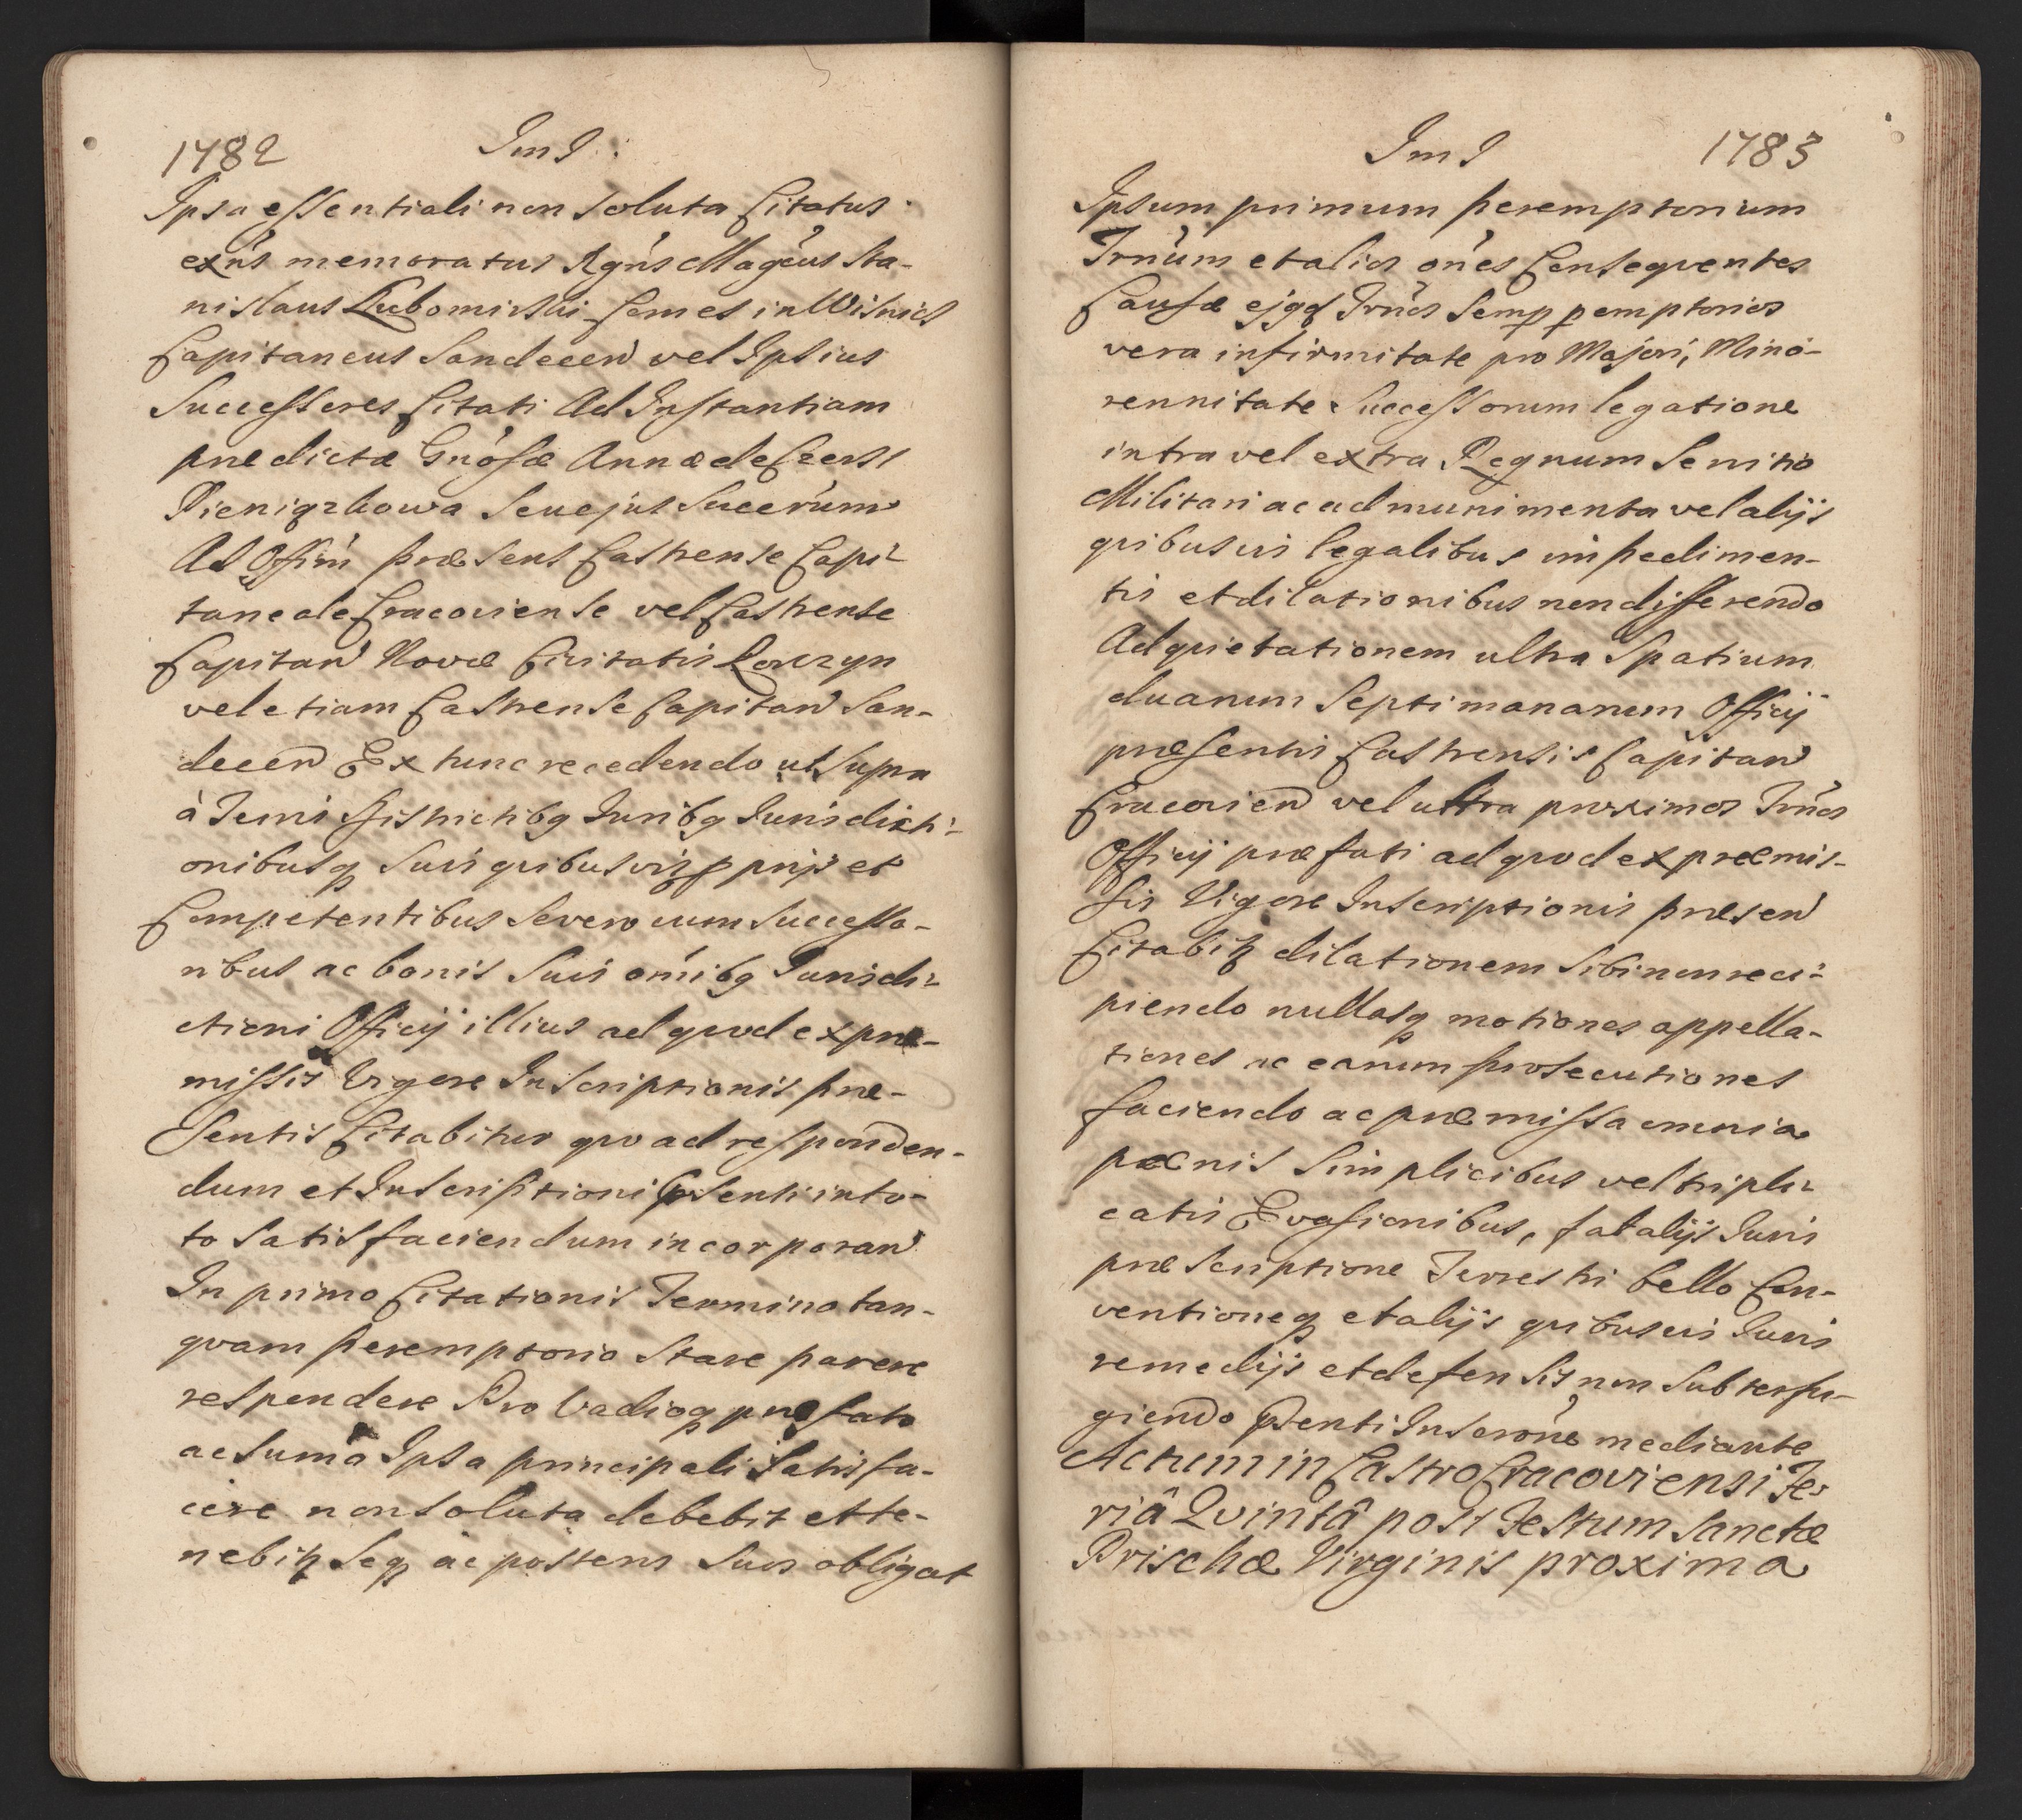 1782 Jm J:
Ipsa essentiali non soluta Citatus
exn̄s memoratus Rgn̄s Magc̄us Sta-
nislaus Lubomirski Comes in Wisnicz
Capitaneus Sandecen̄ vel Ipsius
Successores Citati Ad Instantiam
prædictæ Gnōsæ Annæ de
Pieniązkowa seu ejus Succrūm
Ad Offīm præsens Castrense Capi-
taneale Cracoviense vel Castrense
Capitan̄ Novæ Civitatis Korczyn
vel etiam Castrense Capitan̄ San-
decen̄ Ex tunc recedendo ut supra
à Terris Districtibq Juribq Jurisdicti-
onibusq suis quibusvis pprijs et
Competentibus se vero cum Successo-
ribus ac bonis suis om̄ibq Jurisdi-
ctioni Officij illius ad quod ex præ-
missis Vigore Inscriptionis præ-
sentis Citabitur quo ad responden-
dum et Inscriptioni p̄senti in to-
to satisfaciendum incorporan̄
In primo Citationis Termino tan-
quam peremptorio stare parere
respondere Pro Vadioq præfato
ac sum̄a Ipsa principali satisfa-
cere non soluta debebit et te-
nebitꝝ seq ac posteros suos obligat
Jm J 1783
Ipsum primum peremptorium
Trn̄um et alios on̄es Consequentes
Causæ ejqq Trn̄os semp pemptorios
vera infirmitate pro Majori, Mino-
rennitate Successorum legatione
intra vel extra Regnum Servitio
Militari ac ad munimenta vel alijs
quibusvis legalibus impedimen-
tis et dilationibus non differendo
Ad quietationem ultra Spatium
duarum Septimanarum Officij
præsentis Castrensis Capitan̄
Cracovien̄ vel ultra proximos Trn̄os
Officij præfati ad quod ex præmis-
sis Vigore Inscriptionis præsen̄
Citabitꝝ dilationem sibi non reci-
piendo nullasq motiones appella-
tiones ac earum prosecutiones
faciendo ac præmissa omnia
pœnis simplicibus vel tripli-
catis Evasionibus, fatalijs Juris
præscriptione Terrestri bello Con-
ventioneq et alijs quibusvis Juris
remedijs et defensis non subterfu-
giendo p̄senti Inscrōne mediante
Actum in Castro Cracoviensi Fe-
riâ Qvintâ post Festum Sanctæ
Prischæ Virginis proxima